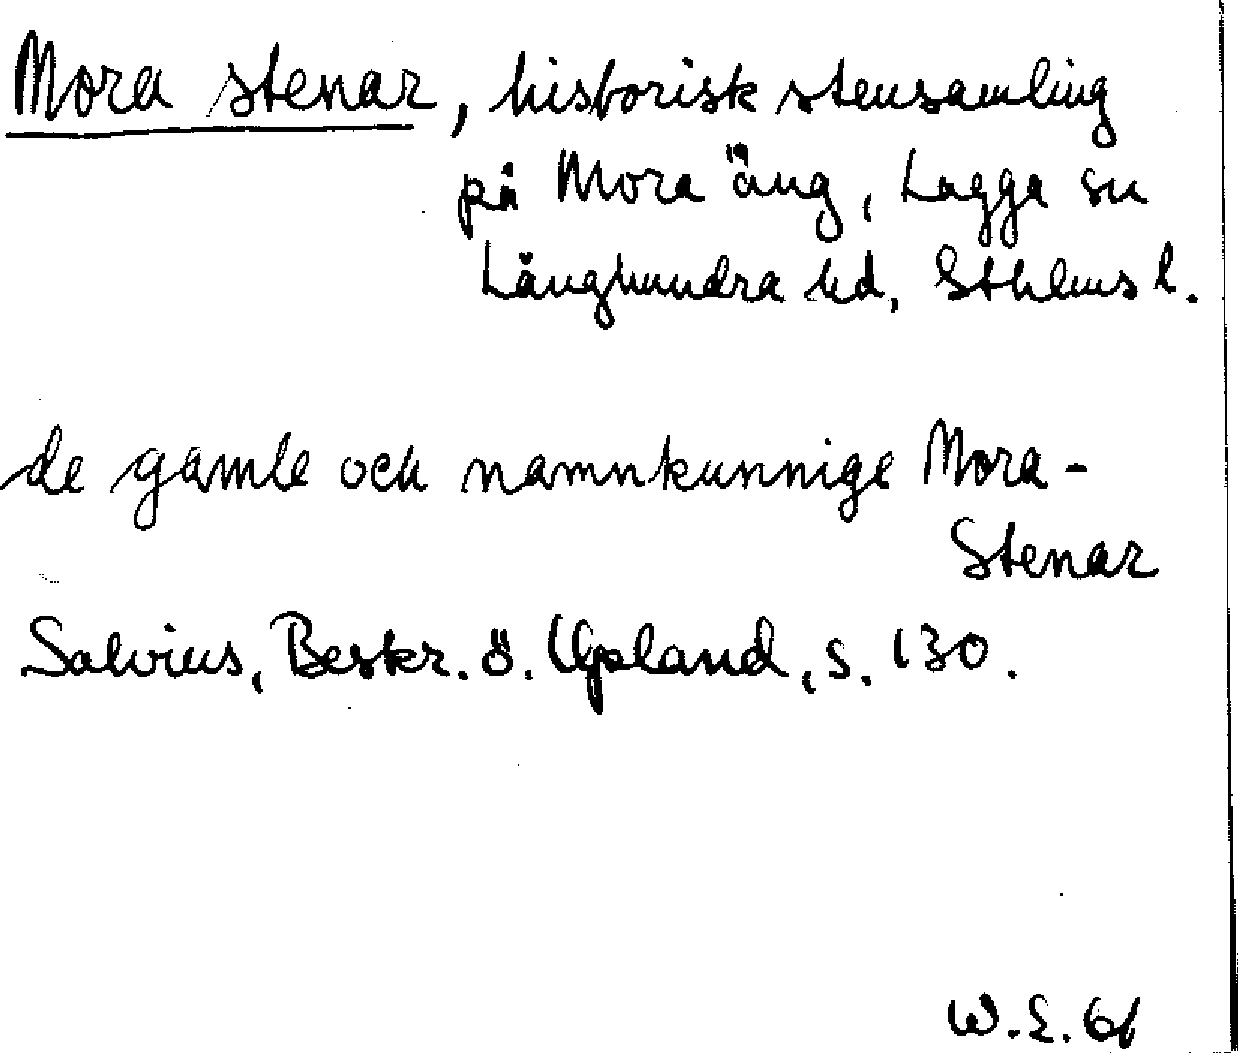 Mora stenar, historisk stensamling
på Mora äng, Lagga sn
Långhundra hd, Sthlms l.
de gamle och namnkunnige Mora-
Stenar
Salvius, Beskr. ö. Upland, s. 130.
W.E. 61